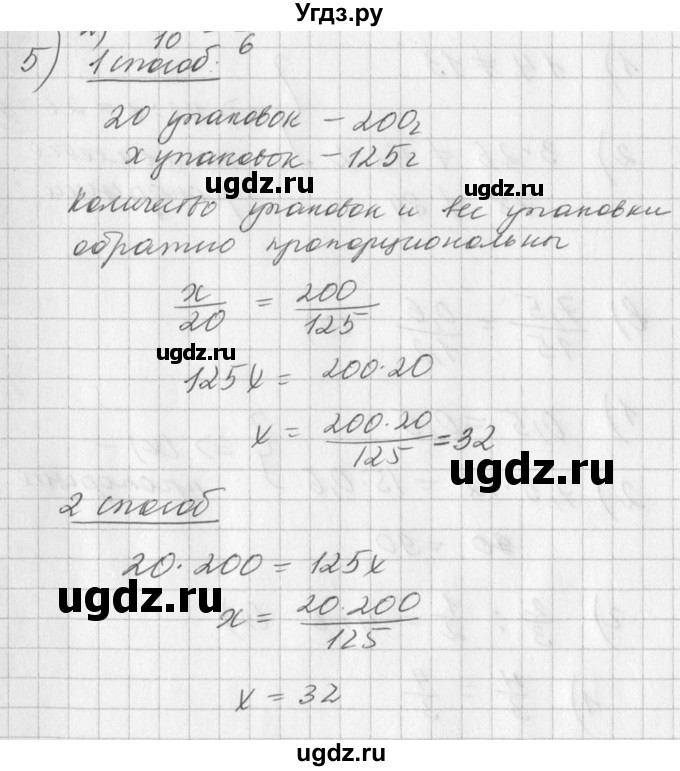 Угдз.ру
10 6
5) 1 способ:
20 упаковок – 200г
x упаковок – 125г
ugdz.ru
количество упаковок и вес упаковки
обратно пропорциональны
x/20 = 200/125
ugdz.ru
125x = 200·20
x = 200·20/125 = 32
ugdz.ru
2 способ
20·200 = 125x
ugdz.ru
x = 20·200/125
ugdz.ru
x = 32
ugdz.ru